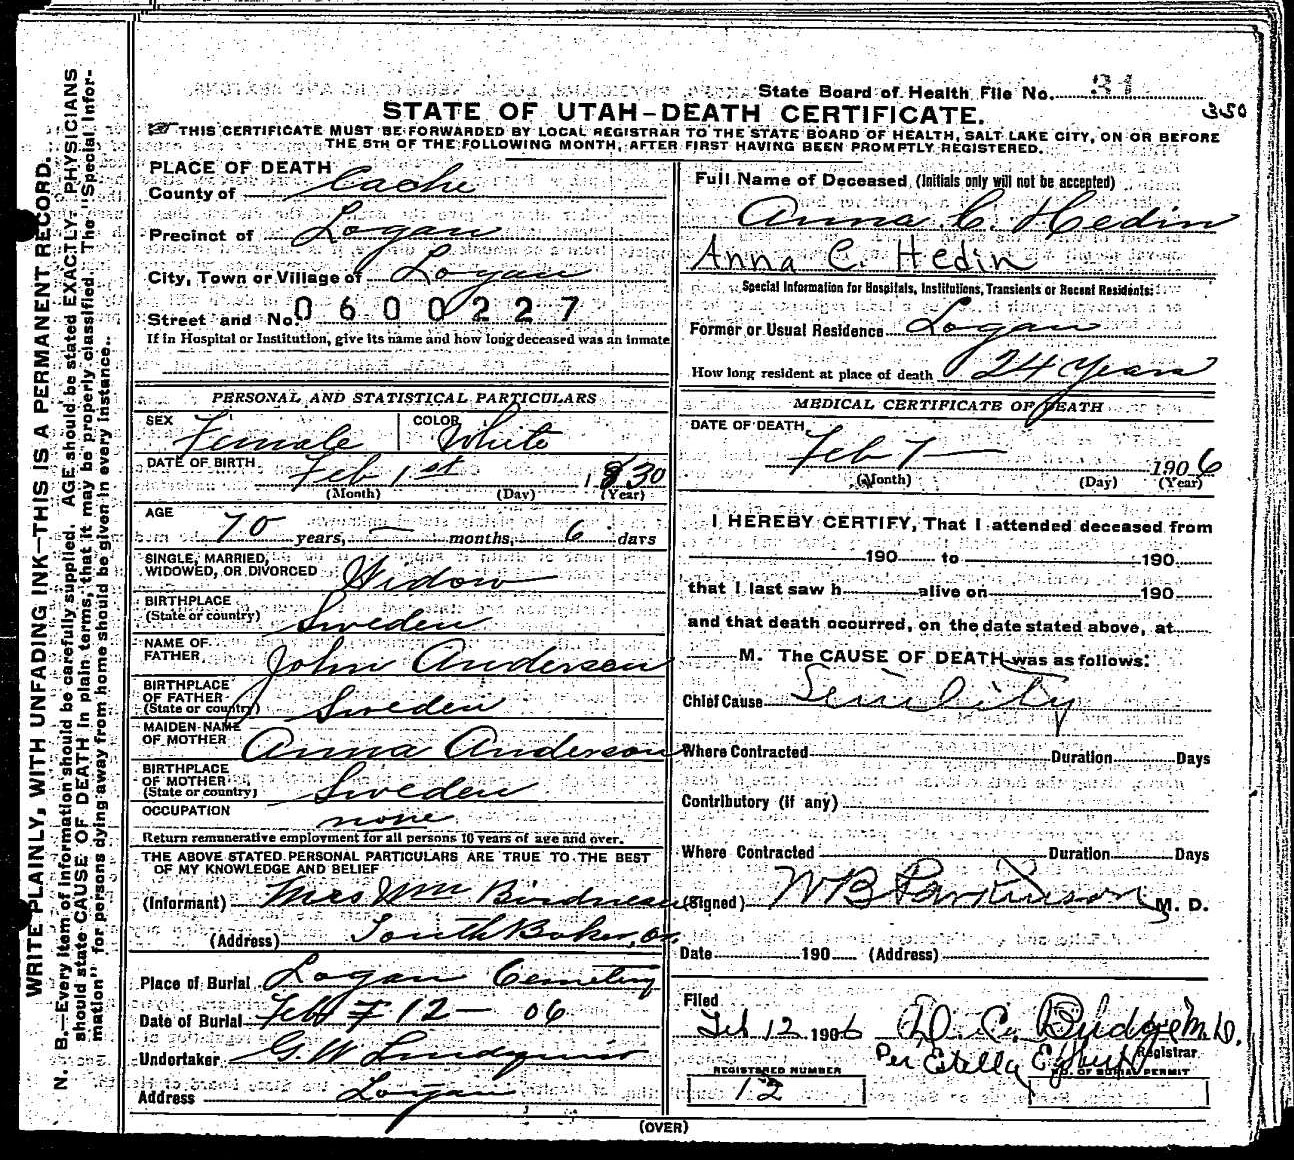 State Board of Health File No. 31
350
STATE OF UTAH-DEATH CERTIFICATE.
THIS CERTIFICATE MUST BE FORWARDED BY LOCAL REGISTRAR TO THE STATE BOARD OF HEALTH, SALT LAKE CITY, ON OR BEFORE
THE 5TH OF THE FOLLOWING MONTH, AFTER FIRST HAVING BEEN PROMPTLY REGISTERED.
WRITE PLAINLY, WITH UNFADING INK—THIS IS A PERMANENT RECORD.
N. B.—Every item of information should be carefully supplied. AGE should be stated EXACTLY. PHYSICIANS
should state CAUSE OF DEATH in plain terms, that it may be properly classified. The "Special Infor-
mation" for persons dying away from home should be given in every instance.
PLACE OF DEATH
County of Cache
Precinct of Logan
City, Town or Village of Logan
Street and No. 0600227
If in Hospital or Institution, give its name and how long deceased was an inmate
PERSONAL AND STATISTICAL PARTICULARS
SEX Female COLOR White
DATE OF BIRTH Feb 1st 1830
(Month) (Day) (Year)
AGE
70 years, — months, 6 days
SINGLE, MARRIED,
WIDOWED, OR DIVORCED Widow
BIRTHPLACE
(State or country) Sweden
NAME OF
FATHER John Anderson
BIRTHPLACE
OF FATHER
(State or country) Sweden
MAIDEN NAME
OF MOTHER Anna Anderson
BIRTHPLACE
OF MOTHER
(State or country) Sweden
OCCUPATION none
Return remunerative employment for all persons 10 years of age and over.
THE ABOVE STATED PERSONAL PARTICULARS ARE TRUE TO THE BEST
OF MY KNOWLEDGE AND BELIEF
(Informant) Mrs Wm
(Address) South Baker, Or.
Place of Burial Logan Cemetery
Date of Burial Feb 12 — 06
Undertaker G. W. Lindquist
Address Logan
Full Name of Deceased (Initials only will not be accepted)
Anna C. Hedin
Anna C. Hedin
Special Information for Hospitals, Institutions, Transients or Recent Residents:
Former or Usual Residence Logan
How long resident at place of death 24 Years
MEDICAL CERTIFICATE OF DEATH
DATE OF DEATH
Feb 7 — 1906
(Month) (Day) (Year)
I HEREBY CERTIFY, That I attended deceased from
190 to 190
that I last saw h alive on 190
and that death occurred, on the date stated above, at
M. The CAUSE OF DEATH was as follows:
Chief Cause Senility
Where Contracted Duration Days
Contributory (if any)
Where Contracted Duration Days
(Signed) W B Parkinson M. D.
Date 190 (Address)
Filed
Feb 12 1906 D. C. Budge M.D.
Per Estella Registrar
REGISTERED NUMBER
12
NO. OF BURIAL PERMIT
(OVER)